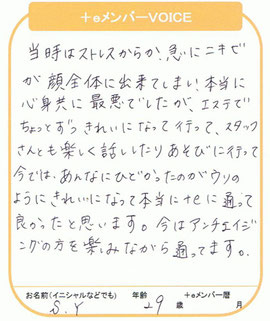 +eメンバーVOICE
当時はストレスからか、急にニキビ
が顔全体に出来てしまい本当に
心身共に最悪でしたが、エステで
ちょっとずつきれいになって行って、スタッフ
さんとも楽しく話ししたりあそびに行って
今では、あんなにひどかったのがウソの
ようにきれいになって本当に+eに通って
良かったと思います。今はアンチエイジ
ングの方を楽しみながら通ってます。
お名前(イニシャルなどでも) 年齢 +eメンバー暦
S.Y 29歳 月